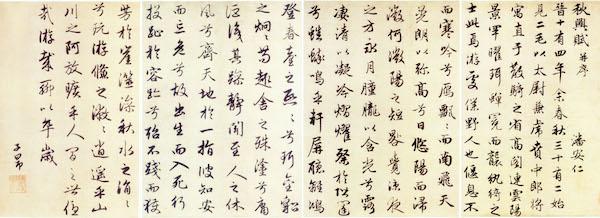 秋興賦并序
潘安仁
晉十有四年余春秋三十有二始
見二毛以太尉掾兼虎賁中郎將
寓直于散騎之省高閣連雲陽
景罕曜珥蟬冕而襲紈綺之
士此焉游處僕野人也偃息不
而寒吟兮鴈飄飄而南飛天
晃朗以彌高兮日悠陽而浸
微何微陽之短晷覺涼夜
之方永月朣朧以含光兮露
淒清以凝冷熠燿粲於階闥
兮蟋蟀鳴乎軒屏聽離鴻
登春臺之熙熙兮珥金貂
之炯炯苟趣舍之殊塗兮庸
詎識其躁靜聞至人之休
風兮齊天地於一指彼知安
而忘危兮故出生而入死行
投趾於容跡兮殆不踐而獲
芳於崖澨澡秋水之涓涓
兮玩游鯈之潎潎逍遙乎山
川之阿放曠乎人間之世優
哉游哉聊以卒歲
子昂